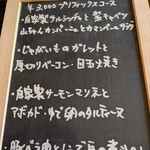 ¥3,000 プリフィックスコース
・自家製サルシッチャと紫キャベツ
山ちゃんカンパーニュとカマンベールサラダ
・じゃがいものガレットと
厚切りベーコン・目玉焼き
・自家製サーモンマリネと
アボカド・ゆで卵のタルティーヌ